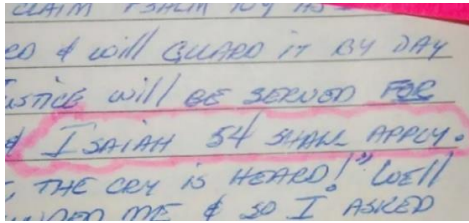 CLAIM PSALM 109 AS
& will GUARD it BY DAY
JUSTICE will BE SERVED FOR
& ISAIAH 54 SHALL APPLY.
, THE CRY is HEARD!" WEll
ME & SO I ASKED